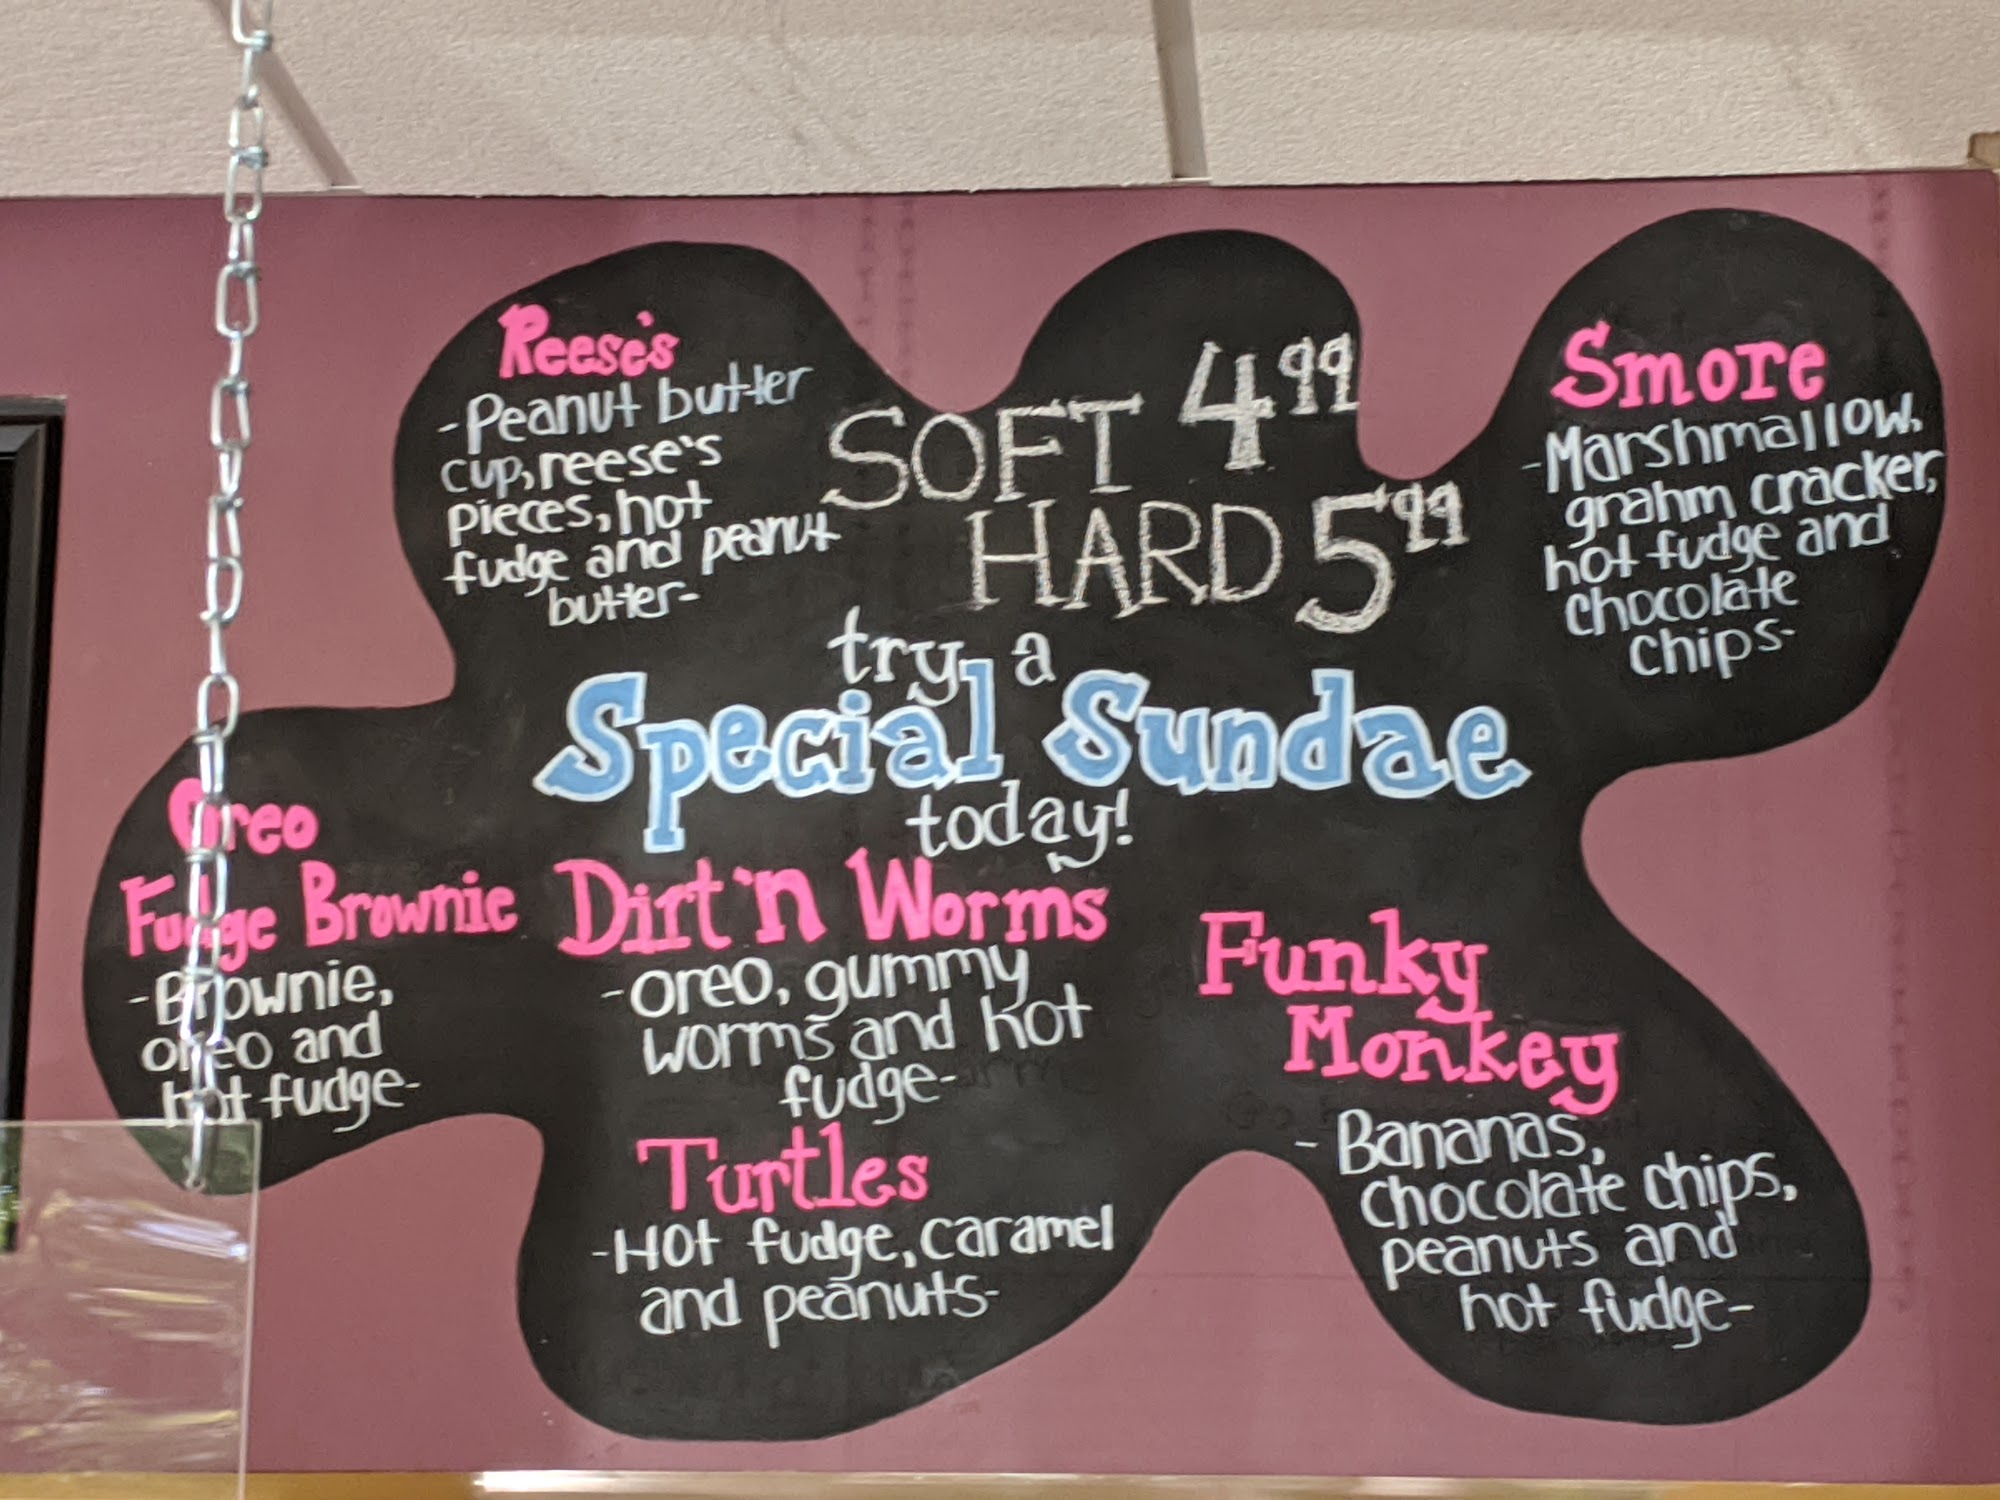 Reese's
-Peanut butter
cup, reese's
pieces, hot
fudge and peanut
butter-
SOFT 4.99
HARD 5.99
Smore
-Marshmallow,
grahm cracker,
hot fudge and
chocolate
chips-
try a
Special Sundae
today!
Oreo
Fudge Brownie
-Brownie,
oreo and
hot fudge-
Dirt'n Worms
-oreo, gummy
worms and hot
fudge-
Turtles
-Hot fudge, caramel
and peanuts-
Funky
Monkey
- Bananas,
chocolate chips,
peanuts and
hot fudge-